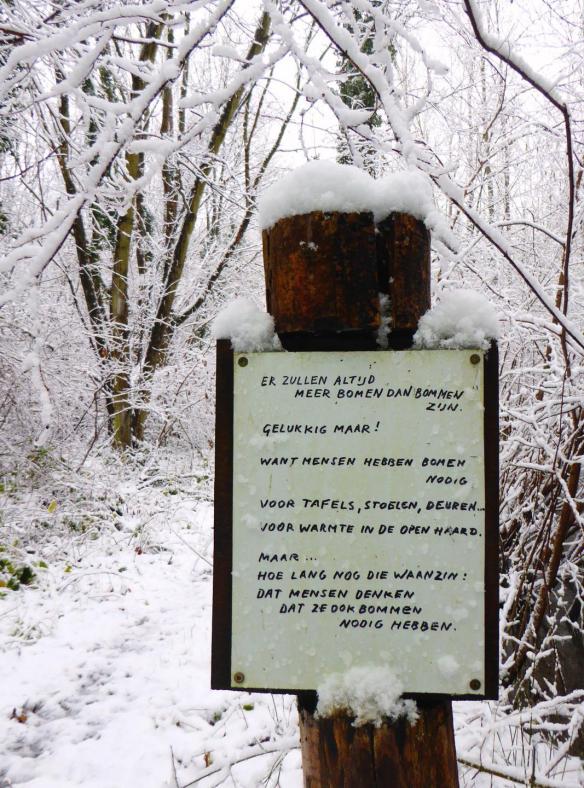 ER ZULLEN ALTIJD
MEER BOMEN DAN BOMMEN
ZIJN.
GELUKKIG MAAR!
WANT MENSEN HEBBEN BOMEN
NODIG
VOOR TAFELS, STOELEN, DEUREN...
VOOR WARMTE IN DE OPEN HAARD.
MAAR...
HOE LANG NOG DIE WAANZIN:
DAT MENSEN DENKEN
DAT ZE OOK BOMMEN
NODIG HEBBEN.